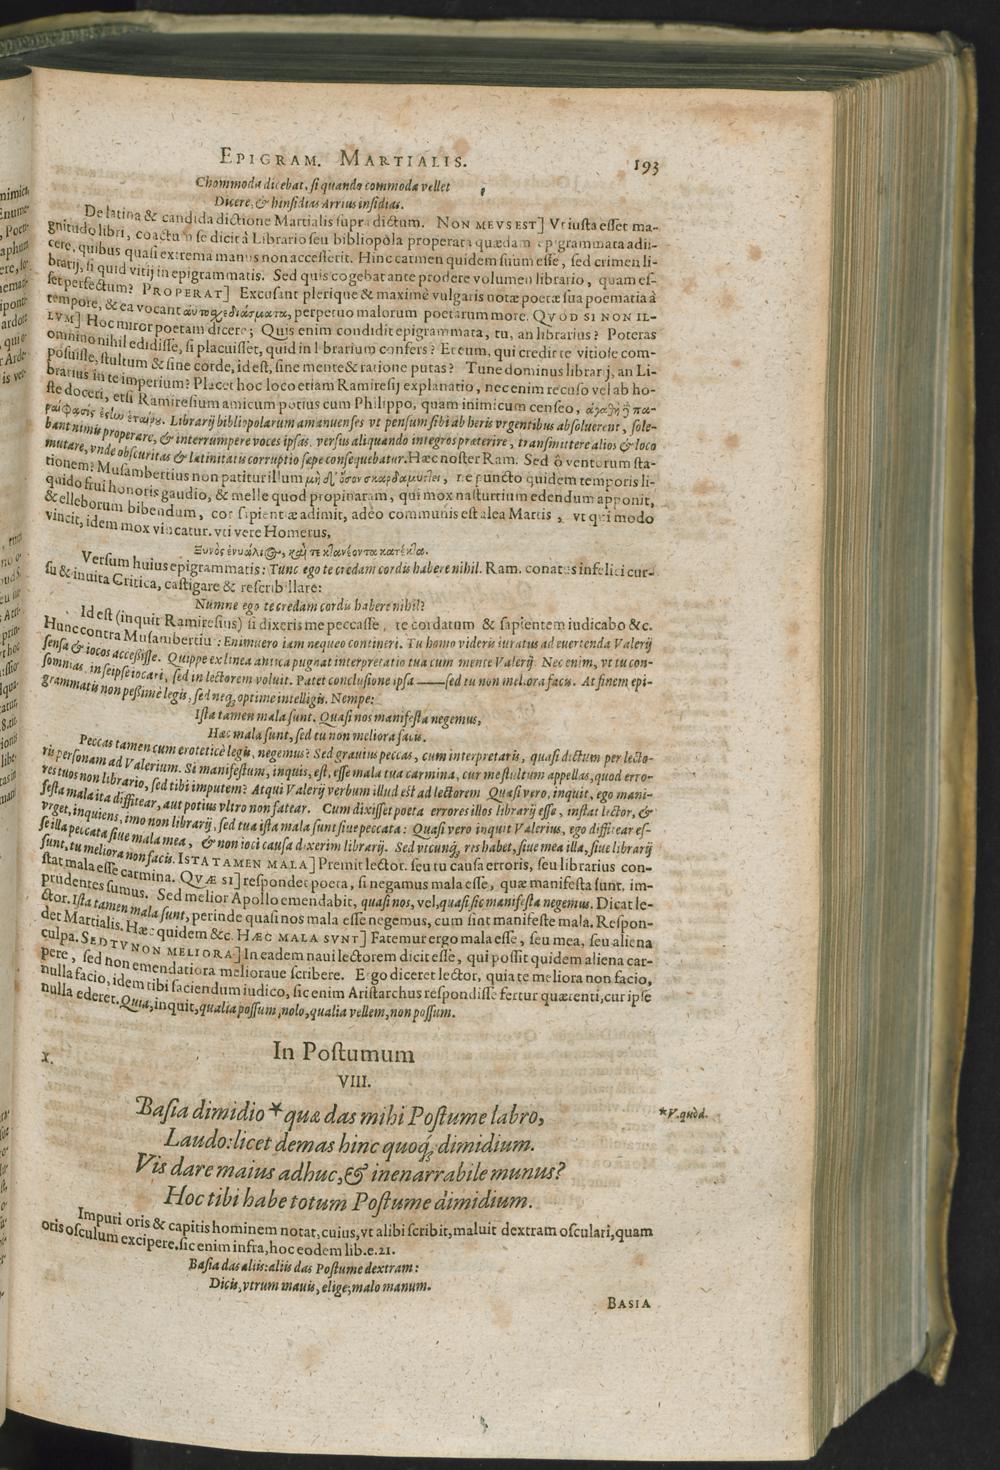 EPIGRAM. MARTIALIS. 193
Chommoda dicebat, si quando commoda vellet
Dicere, & hinsidias Arrius insidias.
De latina & candida dictione Martialis supra dictum. NON MEVS EST] Vt iusta esset ma-
gnitudo libri, coactum se dicit à Librario seu bibliopola properata quædam epigrammata adii-
cere, quibus quasi extrema manus non accesserit. Hinc carmen quidem suum esse, sed crimen li-
brarij, si quid vitij in epigrammatis. Sed quis cogebat ante prodere volumen librario, quam es-
set perfectum? PROPERAT] Excusant plerique & maximè vulgaris notæ poetæ sua poematia à
tempore, & ea vocant αὐτοσχεδιάσματα, perpetuo malorum poetarum more. QVOD SI NON IL-
LVM] Hoc miror poetam dicere; Quis enim condidit epigrammata, tu, an librarius? Poteras
omnino nihil edidisse, si placuisset, quid in librarium confers? Et eum, qui credit te vitiose com-
posuisse, stultum & sine corde, id est, sine mente & ratione putas? Tune dominus librarij, an Li-
brarius in te imperium? Placet hoc loco etiam Ramiresij explanatio, nec enim recuso vel ab ho-
ste doceri, etsi Ramiresium amicum potius cum Philippo, quam inimicum censeo, ἀγαθὴ ἢ πα-
ραίφασίς ἐστιν ἑταίρου. Librarij bibliopolarum amanuenses vt pensum sibi ab heris vrgentibus absoluerent, sole-
bant nimis properare, & interrumpere voces ipsas, versus aliquando integros præterire, transmittere alios & loco
mutare, vnde obscuritas & latinitatis corruptio sæpe consequebatur. Hæc noster Ram. Sed ô ventorum sta-
tionem? Musambertius non patitur illum μὴ δ' ὅσον σκαρδαμυκτεῖ, ne puncto quidem temporis li-
quido frui honoris gaudio, & melle quod propinaram, qui mox nasturtium edendum apponit,
& elleborum bibendum, cor sapientiæ adimit, adeo communis est alea Martis, vt qui modo
vincit, idem mox vincatur. vti vere Homerus,
Ξυνὸς ἐνυάλιος, καί τε κτανέοντα κατέκτα.
Versum huius epigrammatis: Tunc ego te credam cordis habere nihil. Ram. conatus infelici cur-
su & inuita Critica, castigare & rescribillare:
Numne ego te credam cordis habere nihil?
Id est (inquit Ramiresius) si dixeris me peccasse, te cordatum & sapientem iudicabo &c.
Hunc contra Musambertiu : Enimuero iam nequeo contineri. Tu homo videris iuratus ad euertenda Valerij
sensa & iocos accessisse. Quippe ex linea antica pugnat interpretatio tua cum mente Valerij. Nec enim, vt tu con-
somnias, in se ipse iocari, sed in lectorem voluit. Patet conclusione ipsa —— sed tu non meliora facis. At finem epi-
grammatis non pessime legis, sed neq, optime intelligis. Nempe:
Ista tamen mala sunt. Quasi nos manifesta negemus,
Hæc mala sunt, sed tu non meliora facis.
Peccas tamen cum eroteticè legis, negemus? Sed grauius peccas, cum interpretaris, quasi dictum per lecto-
ris personam ad Valerium. Si manifestum, inquis, est, esse mala tua carmina, cur me stultum appellas, quod erro-
res tuos non librario, sed tibi imputem? Atqui Valerij verbum illud est ad lectorem Quasi vero, inquit, ego mani-
festa mala ita diffitear, aut potius vltro non fatear. Cum dixisset poeta errores illos librarij esse, instat lector, &
vrget, inquiens, imo non librarij, sed tua ista mala sunt siue peccata: Quasi vero inquit Valerius, ego diffitear es-
se illa peccata siue mala mea, & non ioci causa dixerim librarij. Sed vtcunq, res habet, siue mea illa, siue librarij
sunt, tu meliora non facis. ISTA TAMEN MALA] Premit lector. seu tu causa erroris, seu librarius con-
stat mala esse carmina. QVÆ SI] respondet poeta, si negamus mala esse, quæ manifesta sunt, im-
prudentes sumus. Sed melior Apollo emendabit, quasi nos, vel, quasi sic manifesta negemus. Dicat le-
ctor. Ista tamen mala sunt, perinde quasi nos mala esse negemus, cum sint manifeste mala. Respon-
det Martialis. Hæc quidem &c. HÆC MALA SVNT] Fatemur ergo mala esse, seu mea, seu aliena
culpa. SED TV NON MELIORA] In eadem naui lectorem dicit esse, qui possit quidem aliena car-
pere, sed non emendatiora melioraue scribere. Ergo diceret lector, quia te meliora non facio,
nulla facio, idem tibi faciendum iudico, sic enim Aristarchus respondisse fertur quærenti, cur ipse
nulla ederet. Quia, inquit, qualia possum, nolo, qualia vellem, non possum.
In Postumum
X.
VIII.
Basia dimidio * quæ das mihi Postume labro,
*V. quòd.
Laudo: licet demas hinc quoq, dimidium.
Vis dare maius adhuc, & inenarrabile munus?
Hoc tibi habe totum Postume dimidium.
Impuri oris & capitis hominem notat, cuius, vt alibi scribit, maluit dextram osculari, quam
oris osculum excipere. sic enim infra, hoc eodem lib. e. 21.
Basia das aliis: aliis das Postume dextram:
Dicis, vtrum mauis, elige; malo manum.
BASIA